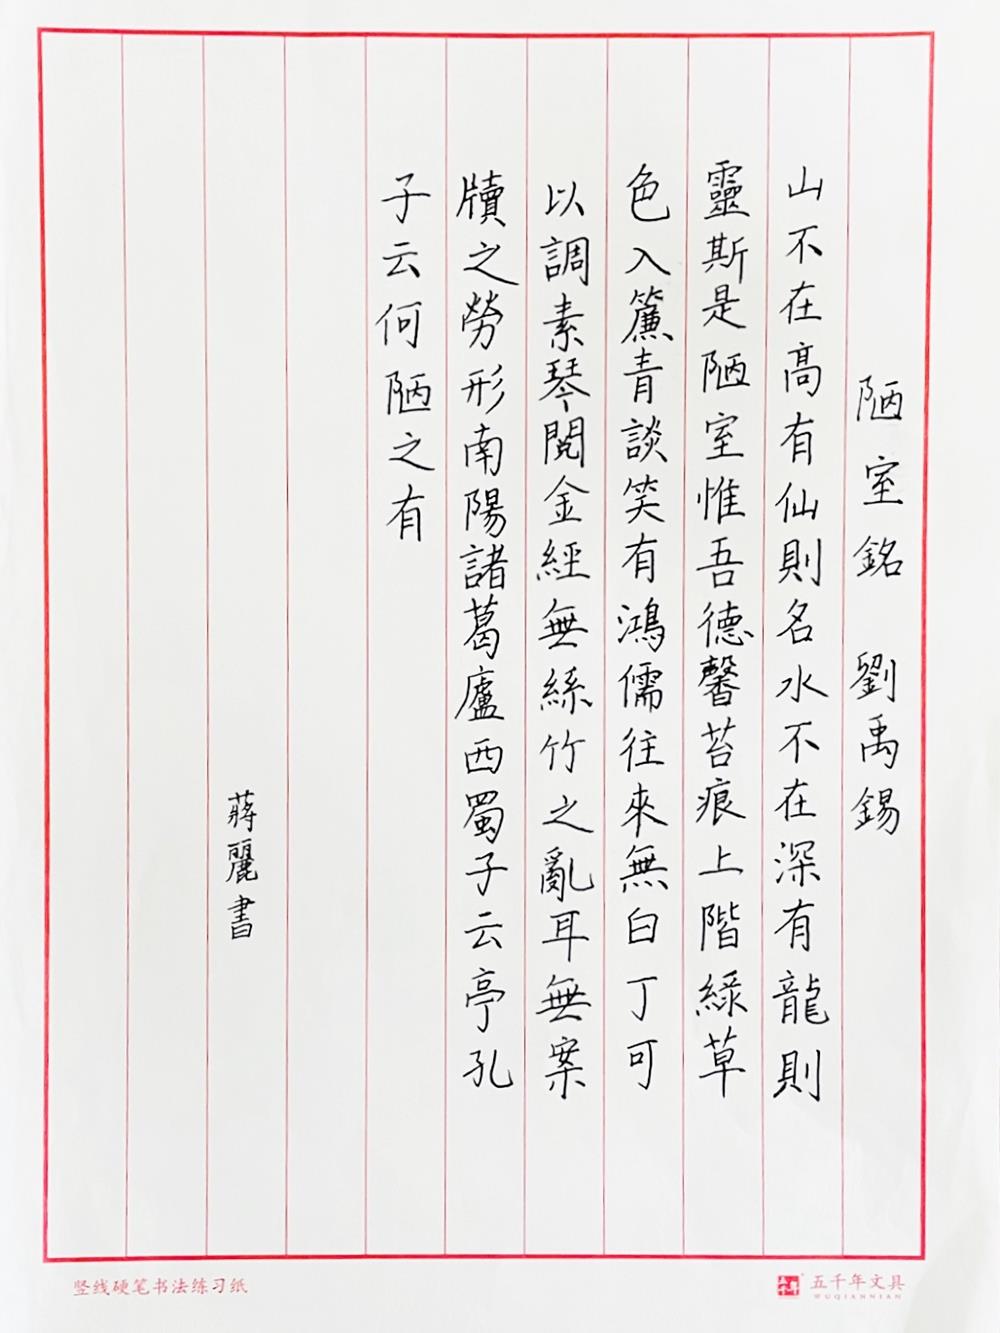 陋室銘 劉禹錫
山不在高有仙則名水不在深有龍則
靈斯是陋室惟吾德馨苔痕上階綠草
色入簾青談笑有鴻儒往來無白丁可
以調素琴閱金經無絲竹之亂耳無案
牘之勞形南陽諸葛廬西蜀子云亭孔
子云何陋之有
蔣麗書
竖线硬笔书法练习纸
五千年文具
WUQIANNIAN